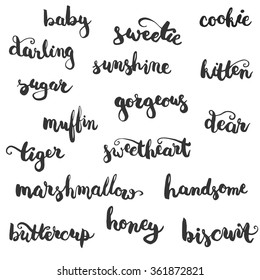 baby
sweetie
cookie
darling
sunshine
kitten
sugar
gorgeous
muffin
dear
tiger
sweetheart
marshmallow
handsome
buttercup
honey
biscuit
shutterstock.com · 361872821